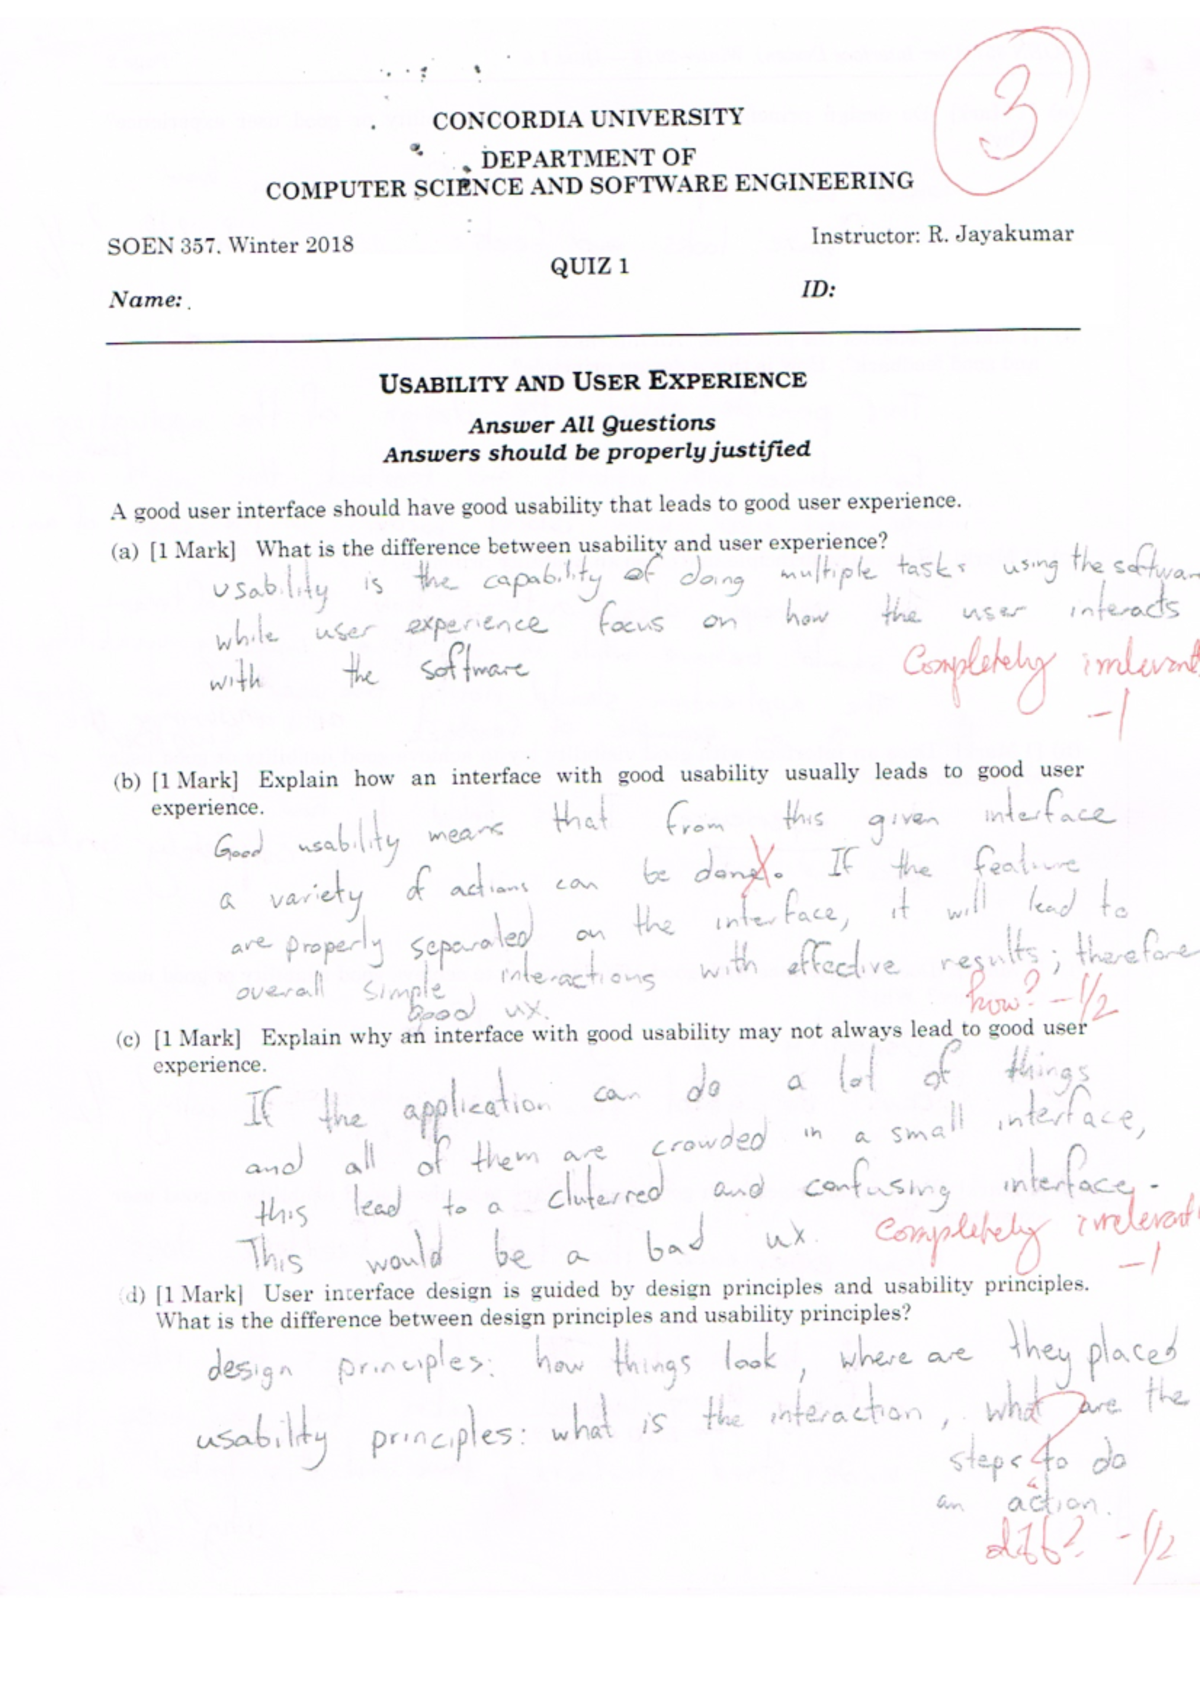 3
CONCORDIA UNIVERSITY
DEPARTMENT OF
COMPUTER SCIENCE AND SOFTWARE ENGINEERING
SOEN 357. Winter 2018
Instructor: R. Jayakumar
QUIZ 1
Name:
ID:
USABILITY AND USER EXPERIENCE
Answer All Questions
Answers should be properly justified
A good user interface should have good usability that leads to good user experience.
(a) [1 Mark] What is the difference between usability and user experience?
usability is the capability of doing multiple tasks using the softwar
while user experience focus on how the user interacts
with the software
Completely irrelevant
-1
(b) [1 Mark] Explain how an interface with good usability usually leads to good user
experience.
Good usability means that from this given interface
a variety of actions can be done. If the feature
are properly separated on the interface, it will lead to
overall simple interactions with effective results; therefore
good ux.
how? -1/2
(c) [1 Mark] Explain why an interface with good usability may not always lead to good user
experience.
If the application can do a lot of things
and all of them are crowded in a small interface,
this lead to a cluterred and confusing interface.
This would be a bad ux.
Completely irrelevant
-1
(d) [1 Mark] User interface design is guided by design principles and usability principles.
What is the difference between design principles and usability principles?
design principles: how things look, where are they placed
usability principles: what is the interaction, what are the
steps to do
an action.
diff? -1/2